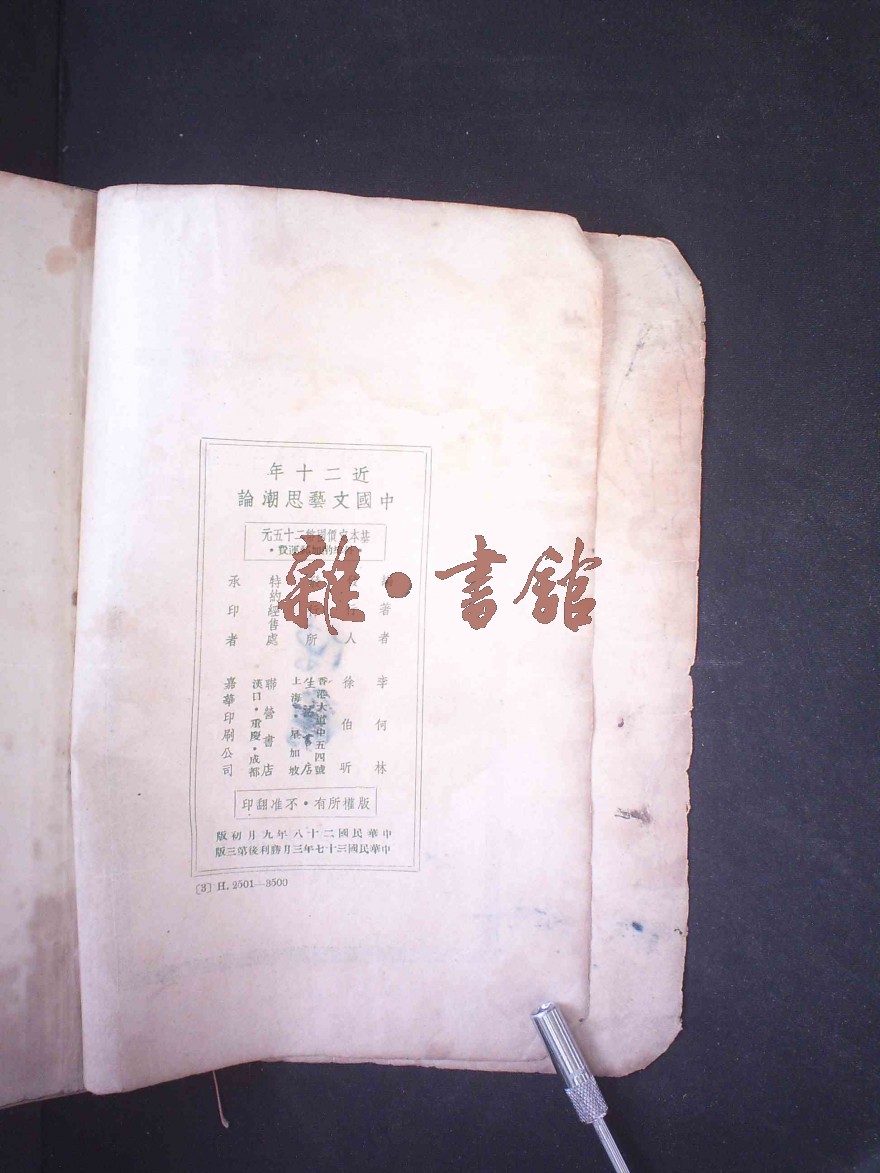 近二十年
中國文藝思潮論
基本定價國幣二十五元
著者 李何林
人 徐伯昕
所 生活書店
香港大道中五四號
上海・星加坡
特約經售處 聯營書店
漢口・重慶・成都
承印者 嘉華印刷公司
版權所有・不准翻印
中華民國二十八年九月初版
中華民國三十七年三月勝利後第三版
[3] H. 2501—3500
雜・書館